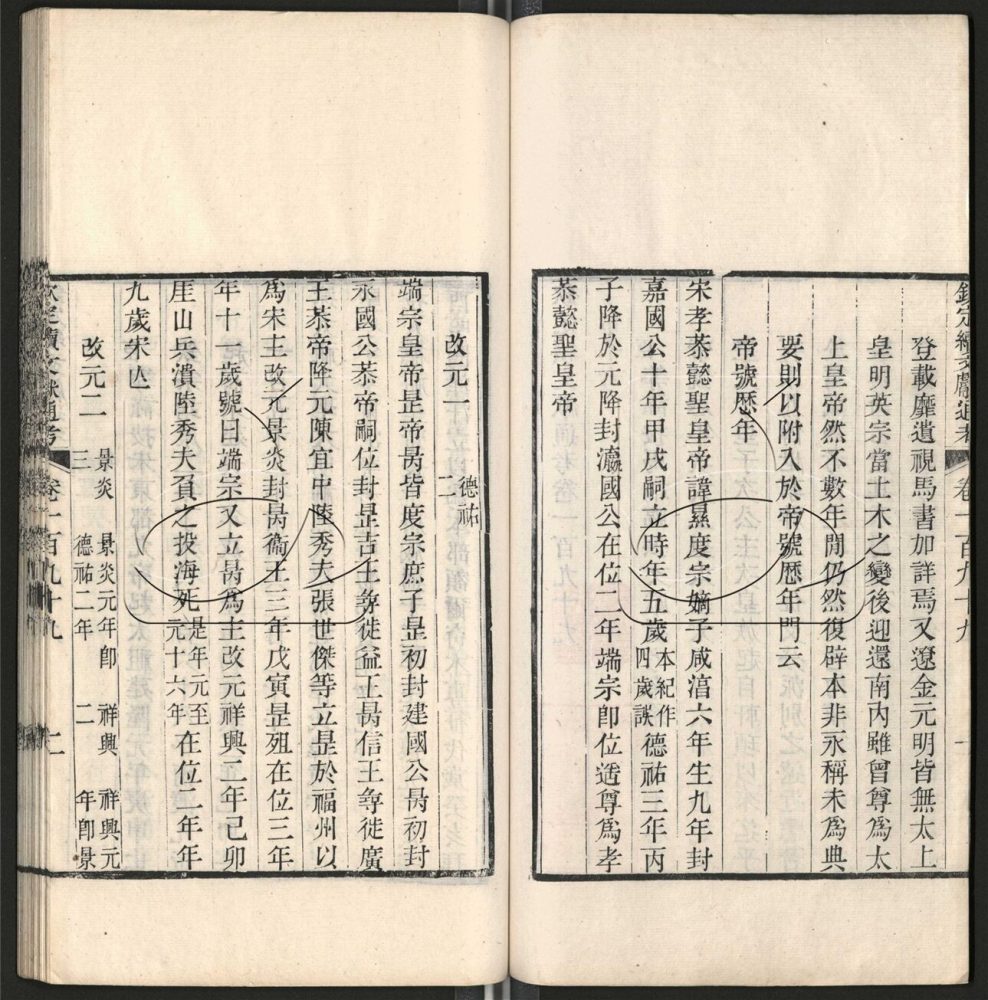 欽定續文獻通考 卷一百九十九 一
登載靡遺視馬書加詳焉又遼金元明皆無太上
皇明英宗當土木之變後迎還南內雖曾尊爲太
上皇帝然不數年間仍然復辟本非永稱未爲典
要則以附入於帝號歷年門云
帝號歷年
宋孝恭懿聖皇帝諱㬎度宗嫡子咸淳六年生九年封
嘉國公十年甲戌嗣立時年五歲本紀作四歲誤德祐三年丙
子降於元降封瀛國公在位二年端宗即位遙尊爲孝
恭懿聖皇帝
改元一 德祐二
端宗皇帝昰帝昺皆度宗庶子昰初封建國公昺初封
永國公恭帝嗣位封昰吉王尋徙益王昺信王尋徙廣
王恭帝降元陳宜中陸秀夫張世傑等立昰於福州以
爲宋主改元景炎封昺衞王三年戊寅昰殂在位三年
年十一歲號曰端宗又立昺爲主改元祥興二年己卯
厓山兵潰陸秀夫負之投海死是年元至元十六年在位二年年
九歲宋亾
改元二 景炎三 景炎元年卽德祐二年 祥興二 祥興元年卽景
欽定續文獻通考 卷一百九十九 二